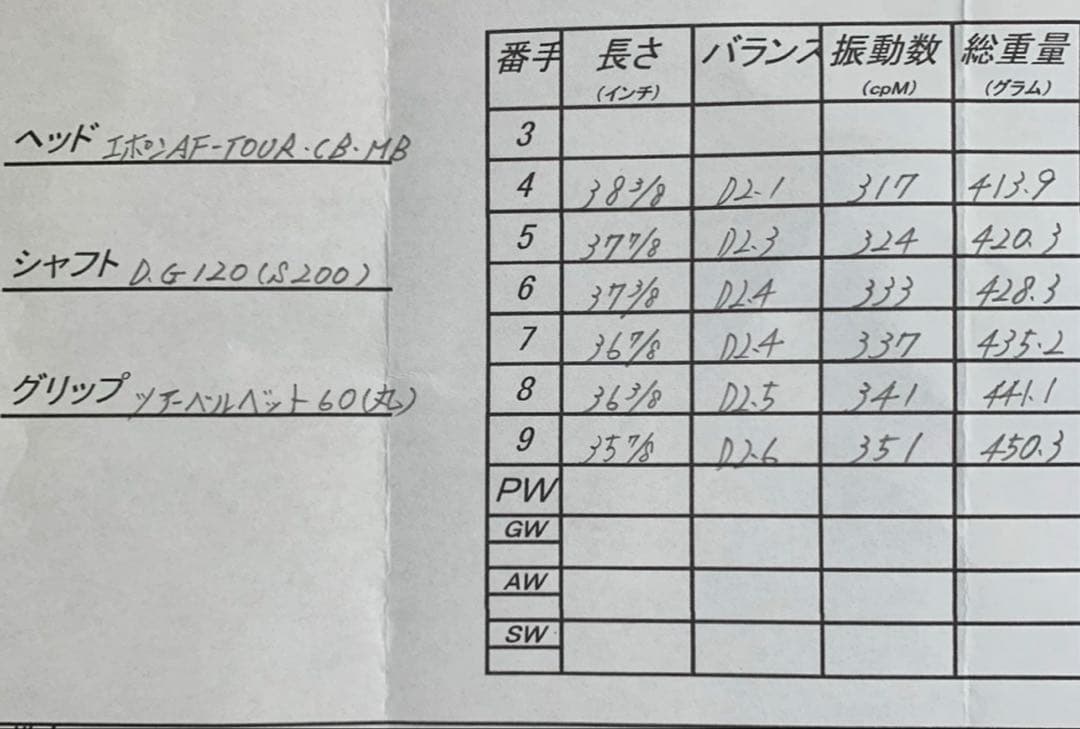 ヘッド エポンAF-TOUR・CB・MB
シャフト D.G120(S200)
グリップ ツアーベルベット60(丸)
番手 長さ(インチ) バランス 振動数(cpM) 総重量(グラム)
3
4 38 3/8 D2.1 317 413.9
5 37 7/8 D2.3 324 420.3
6 37 3/8 D2.4 333 428.3
7 36 7/8 D2.4 337 435.2
8 36 3/8 D2.5 341 441.1
9 35 7/8 D2.6 351 450.3
PW
GW
AW
SW